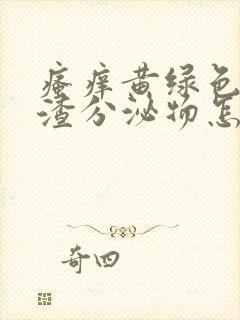 瘙痒黄绿色
渣分泌物怎
奇四